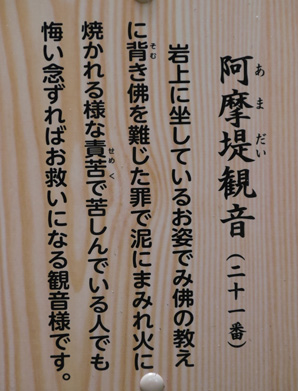 阿摩堤観音(二十一番)
あまだい
岩上に坐しているお姿でみ佛の教え
に背き佛を難じた罪で泥にまみれ火に
そむ
焼かれる様な責苦で苦しんでいる人でも
せめく
悔い念ずればお救いになる観音様です。